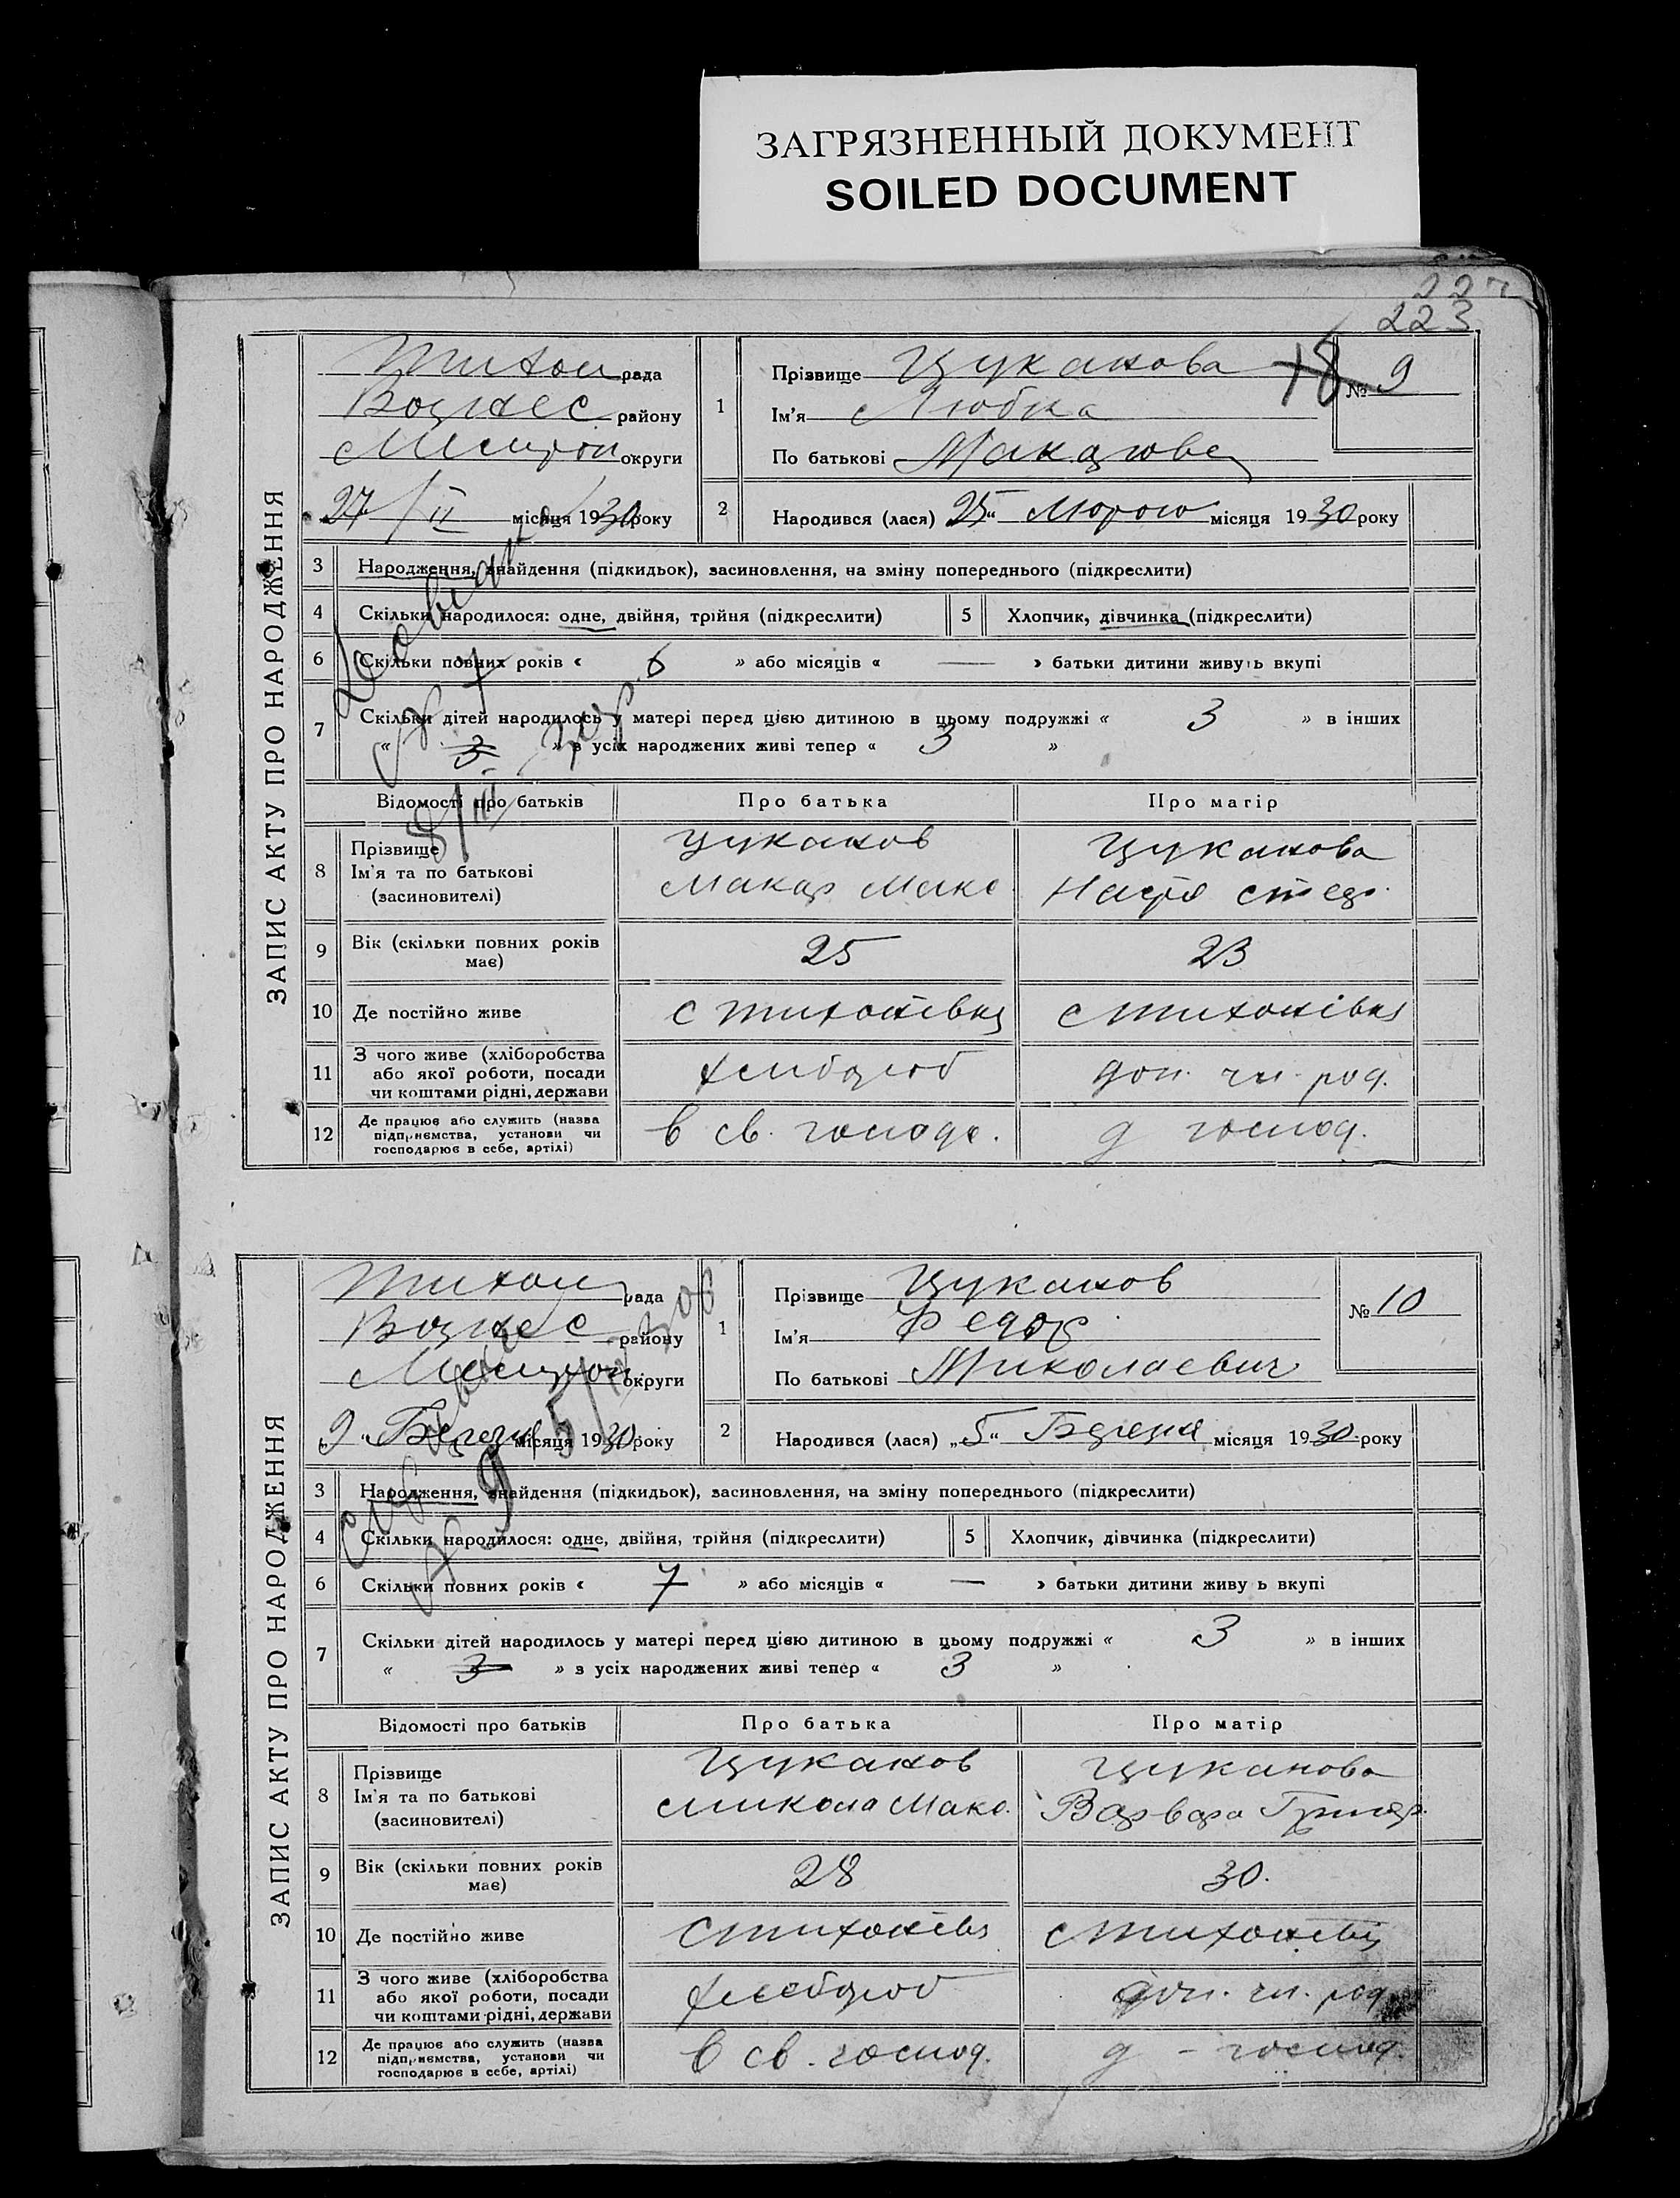 ЗАГРЯЗНЕННЫЙ ДОКУМЕНТ
SOILED DOCUMENT
223
ЗАПИС АКТУ ПРО НАРОДЖЕННЯ
Тихон рада
Вознес району
округи
27/II місяця 1930 року
1
Прізвище Цуканова
Ім'я Любка
По батькові
№ 9
2
Народився (лася) 25 Лютого місяця 1930 року
3 Народження, знайдення (підкидьок), засиновлення, на зміну попереднього (підкреслити)
4 Скільки народилося: одне, двійня, трійня (підкреслити) 5 Хлопчик, дівчинка (підкреслити)
6 Скільки повних років « 6 » або місяців « — » батьки дитини живуть вкупі
7 Скільки дітей народилось у матері перед цією дитиною в цьому подружжі « 3 » в інших
« 3 » з усіх народжених живі тепер « 3 »
Відомості про батьків Про батька Про матір
8 Прізвище
Ім'я та по батькові
(засиновителі)
Цуканов
Макар Макс.
Цуканова
Настя
9 Вік (скільки повних років має) 25 23
10 Де постійно живе с Тихонівка с Тихонівка
11 З чого живе (хліборобства або якої роботи, посади чи коштами рідні, держави хлібороб доп. чл. род.
12 Де працює або служить (назва підприємства, установи чи господарює в себе, артілі) в св. господ. д господ.
ЗАПИС АКТУ ПРО НАРОДЖЕННЯ
Тихон рада
Вознес району
округи
„9" Березня місяця 1930 року
1
Прізвище Цуканов
Ім'я Федор
По батькові Миколаевич
№ 10
2
Народився (лася) „5" Березня місяця 1930 року
3 Народження, знайдення (підкидьок), засиновлення, на зміну попереднього (підкреслити)
4 Скільки народилося: одне, двійня, трійня (підкреслити) 5 Хлопчик, дівчинка (підкреслити)
6 Скільки повних років « 7 » або місяців « — » батьки дитини живу ь вкупі
7 Скільки дітей народилось у матері перед цією дитиною в цьому подружжі « 3 » в інших
« 3 » з усіх народжених живі тепер « 3 »
Відомості про батьків Про батька Про матір
8 Прізвище
Ім'я та по батькові
(засиновителі)
Цуканов
Микола Макс.
Цуканова
Варвара Григор.
9 Вік (скільки повних років має) 28 30.
10 Де постійно живе с Тихонівк с Тихонівц
11 З чого живе (хліборобства або якої роботи, посади чи коштами рідні, держави хлебороб доп. чл. род
12 Де працює або служить (назва підприємства, установи чи господарює в себе, артілі) в св. господ. д - господ.